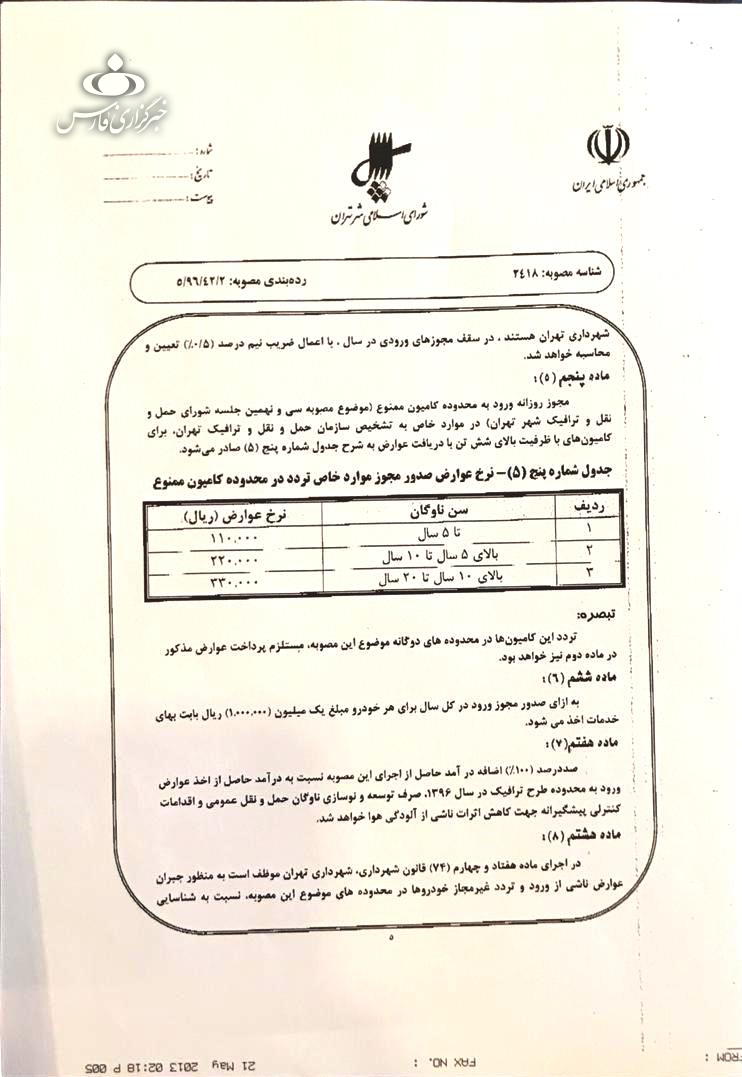 خبرگزاری فارس
جمهوری اسلامی ایران
شورای اسلامی شهر تهران
شماره:
تاریخ:
پیوست:
شناسه مصوبه: ۲۴۱۸
رده‌بندی مصوبه: ۵/۹۶/۴۲/۲
شهرداری تهران هستند ، در سقف مجوزهای ورودی در سال ، با اعمال ضریب نیم درصد (۰/۵٪) تعیین و
محاسبه خواهد شد.
ماده پنجم (۵):
مجوز روزانه ورود به محدوده کامیون ممنوع (موضوع مصوبه سی و نهمین جلسه شورای حمل و
نقل و ترافیک شهر تهران) در موارد خاص به تشخیص سازمان حمل و نقل و ترافیک تهران، برای
کامیون‌های با ظرفیت بالای شش تن با دریافت عوارض به شرح جدول شماره پنج (۵) صادر می‌شود.
جدول شماره پنج (۵)– نرخ عوارض صدور مجوز موارد خاص تردد در محدوده کامیون ممنوع
ردیف سن ناوگان نرخ عوارض (ریال)
۱ تا ۵ سال ۱۱۰،۰۰۰
۲ بالای ۵ سال تا ۱۰ سال ۲۲۰،۰۰۰
۳ بالای ۱۰ سال تا ۲۰ سال ۳۳۰،۰۰۰
تبصره:
تردد این کامیون‌ها در محدوده های دوگانه موضوع این مصوبه، مستلزم پرداخت عوارض مذکور
در ماده دوم نیز خواهد بود.
ماده ششم (۶):
به ازای صدور مجوز ورود در کل سال برای هر خودرو مبلغ یک میلیون (۱،۰۰۰،۰۰۰) ریال بابت بهای
خدمات اخذ می شود.
ماده هفتم(۷):
صددرصد (۱۰۰٪) اضافه در آمد حاصل از اجرای این مصوبه نسبت به درآمد حاصل از اخذ عوارض
ورود به محدوده طرح ترافیک در سال ۱۳۹۶، صرف توسعه و نوسازی ناوگان حمل و نقل عمومی و اقدامات
کنترلی پیشگیرانه جهت کاهش اثرات ناشی از آلودگی هوا خواهد شد.
ماده هشتم (۸):
در اجرای ماده هفتاد و چهارم (۷۴) قانون شهرداری، شهرداری تهران موظف است به منظور جبران
عوارض ناشی از ورود و تردد غیرمجاز خودروها در محدوده های موضوع این مصوبه، نسبت به شناسایی
۵
FROM : FAX NO. : 21 May 2013 02:18 P 005